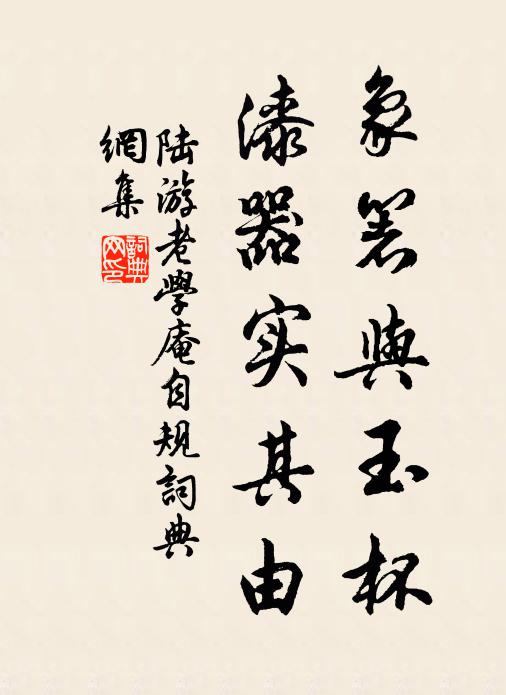 象箸與玉杯
漆器实其由
陆游老學庵自规詞典
網集
詞典网印